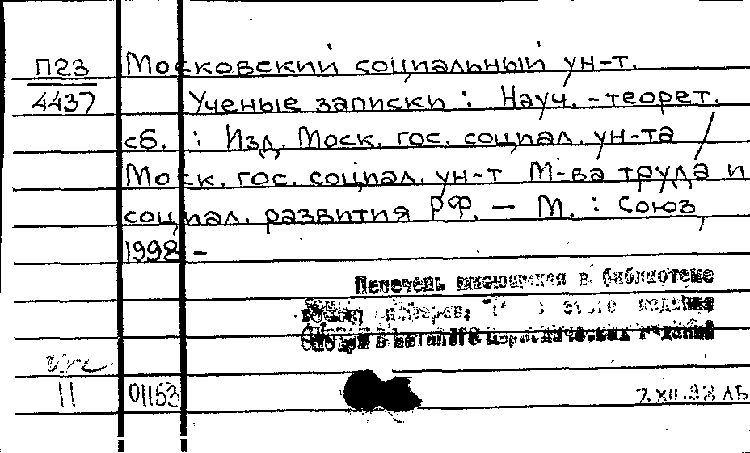 П23 Московский социальный ун-т.
4437 Ученые записки : Науч.-теорет.
сб. : Изд. Моск. гос. социал. ун-та /
Моск. гос. социал. ун-т М-ва труда и
социал. развития РФ. — М. : Союз,
1998 -
Перечень имеющихся в библиотеке
этого издания
смотри в каталоге периодических изданий
11 01153
7.XII.98 АБ